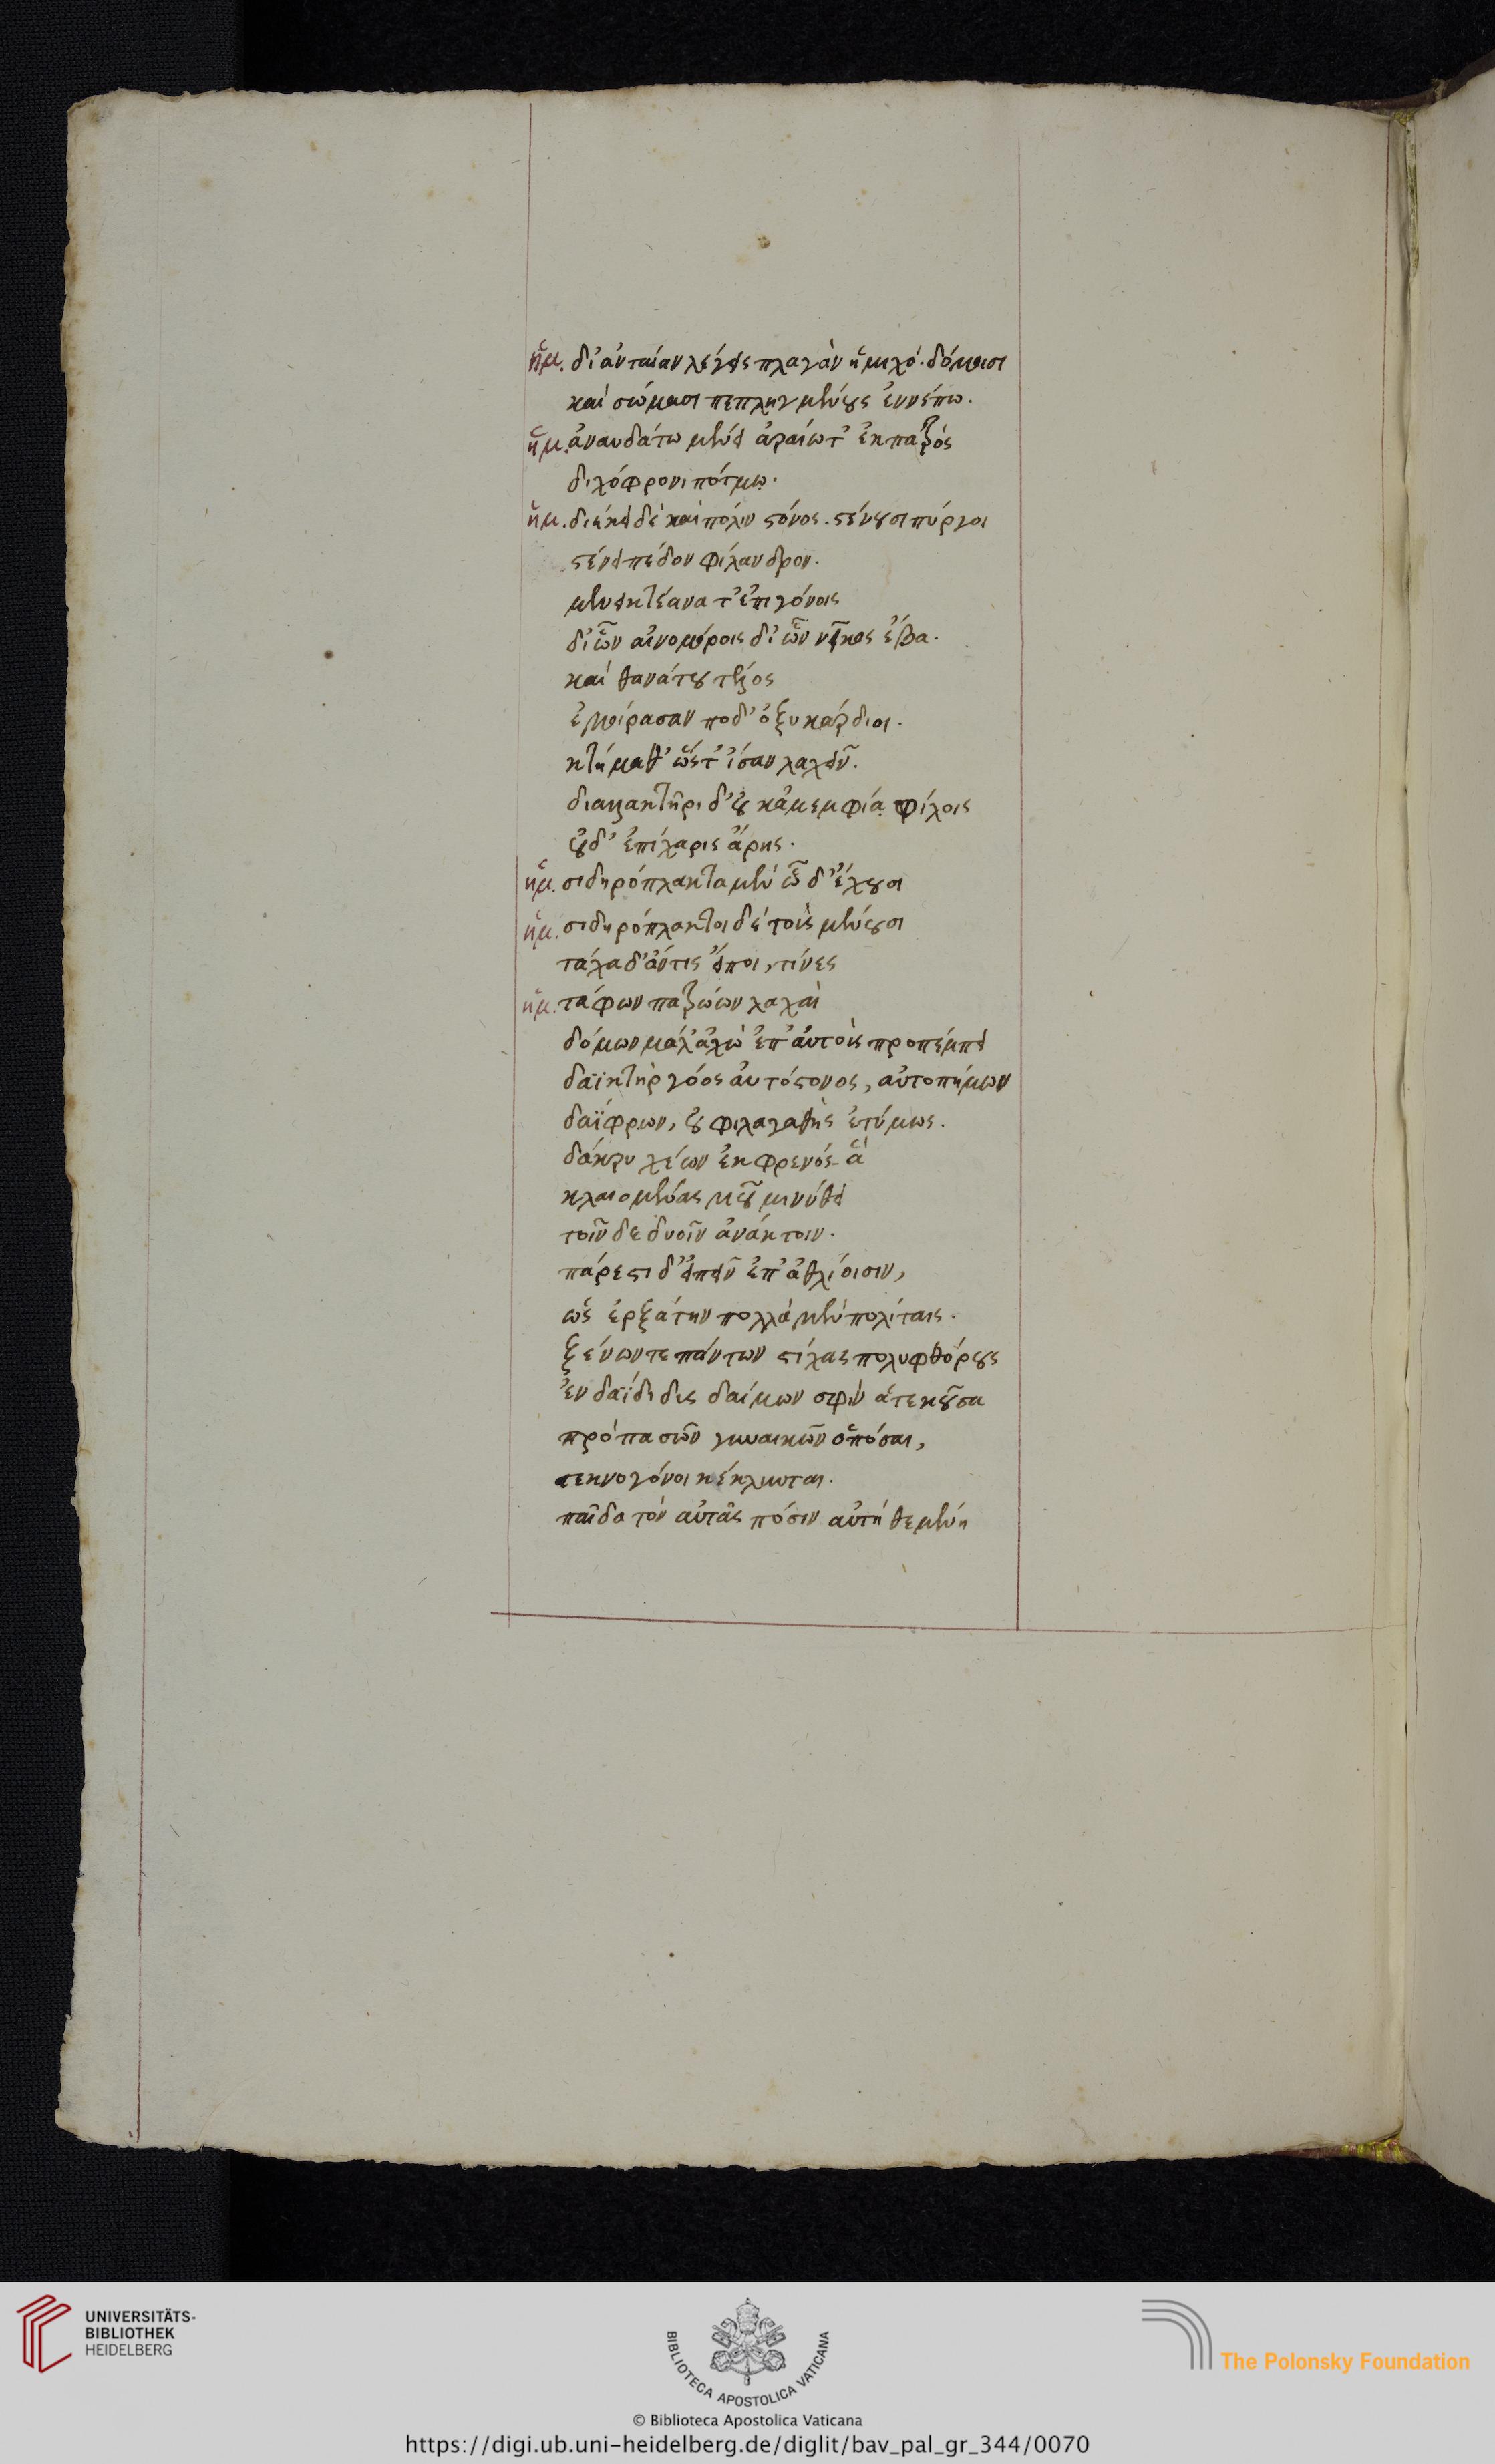 ἡμ. δι' ἀνταίαν λέγεις πλαγὰν ἡμιχό. δόμοισι
καὶ σώμασι πεπληγμένους ἐννέπω.
ἡμ. ἀναυδάτω μένει ἀραίω τ' ἐκ πατρὸς
διχόφρονι πότμω.
ἡμ. διήκει δὲ καὶ πόλιν στόνος. στένουσι πύργοι
στένει πέδον φίλανδρον.
μένει κτέανα τ' ἐπιγόνοις
δι' ὧν αἰνομόροις δι' ὧν νεῖκος ἔβα.
καὶ θανάτου τέλος
ἐμοίρασαν ποδ' ὀξυκάρδιοι.
κτήμαθ' ὥστ' ἴσαν λαχεῖν.
διαλλακτῆρι δ' οὐκ ἀμεμφία φίλοις
οὐδ' ἐπίχαρις ἄρης.
ἡμ. σιδηρόπλακτα μὲν ὧδ' ἔχουσι
ἡμ. σιδηρόπλακτοι δὲ τοὺς μένουσι
τάχα δ' ἄν τις εἴποι, τίνες
ἡμ. τάφων πατρώων λαχαὶ
δόμων μάλ' ἀχὼ ἐπ' αὐτοὺς προπέμπει
δαϊκτὴρ γόος αὐτόστονος, αὐτοπήμων
δαΐφρων, οὐ φιλαγαθὴς ἐτύμως.
δάκρυ χέων ἐκ φρενός- ἃ
κλαιομένας μοῦ μινύθει
τοῖν δε δυοῖν ἀνάκτοιν.
πάρεστι δ' εἰπεῖν ἐπ' ἀθλίοισιν,
ὡς ἐρξάτην πολλὰ μὲν πολίταις.
ξένων τε πάντων στίχας πολυφθόρους
ἐν δαΐδι δυς δαίμων σφὶν ἁ τεκοῦσα
πρόπασῶν γυναικῶν ὁπόσαι,
τεκνογόνοι κέκληνται.
παῖδα τὸν αὑτᾶς πόσιν αὐτὴ θεμένη
UNIVERSITÄTS-
BIBLIOTHEK
HEIDELBERG
BIBLIOTECA APOSTOLICA VATICANA
The Polonsky Foundation
© Biblioteca Apostolica Vaticana
https://digi.ub.uni-heidelberg.de/diglit/bav_pal_gr_344/0070